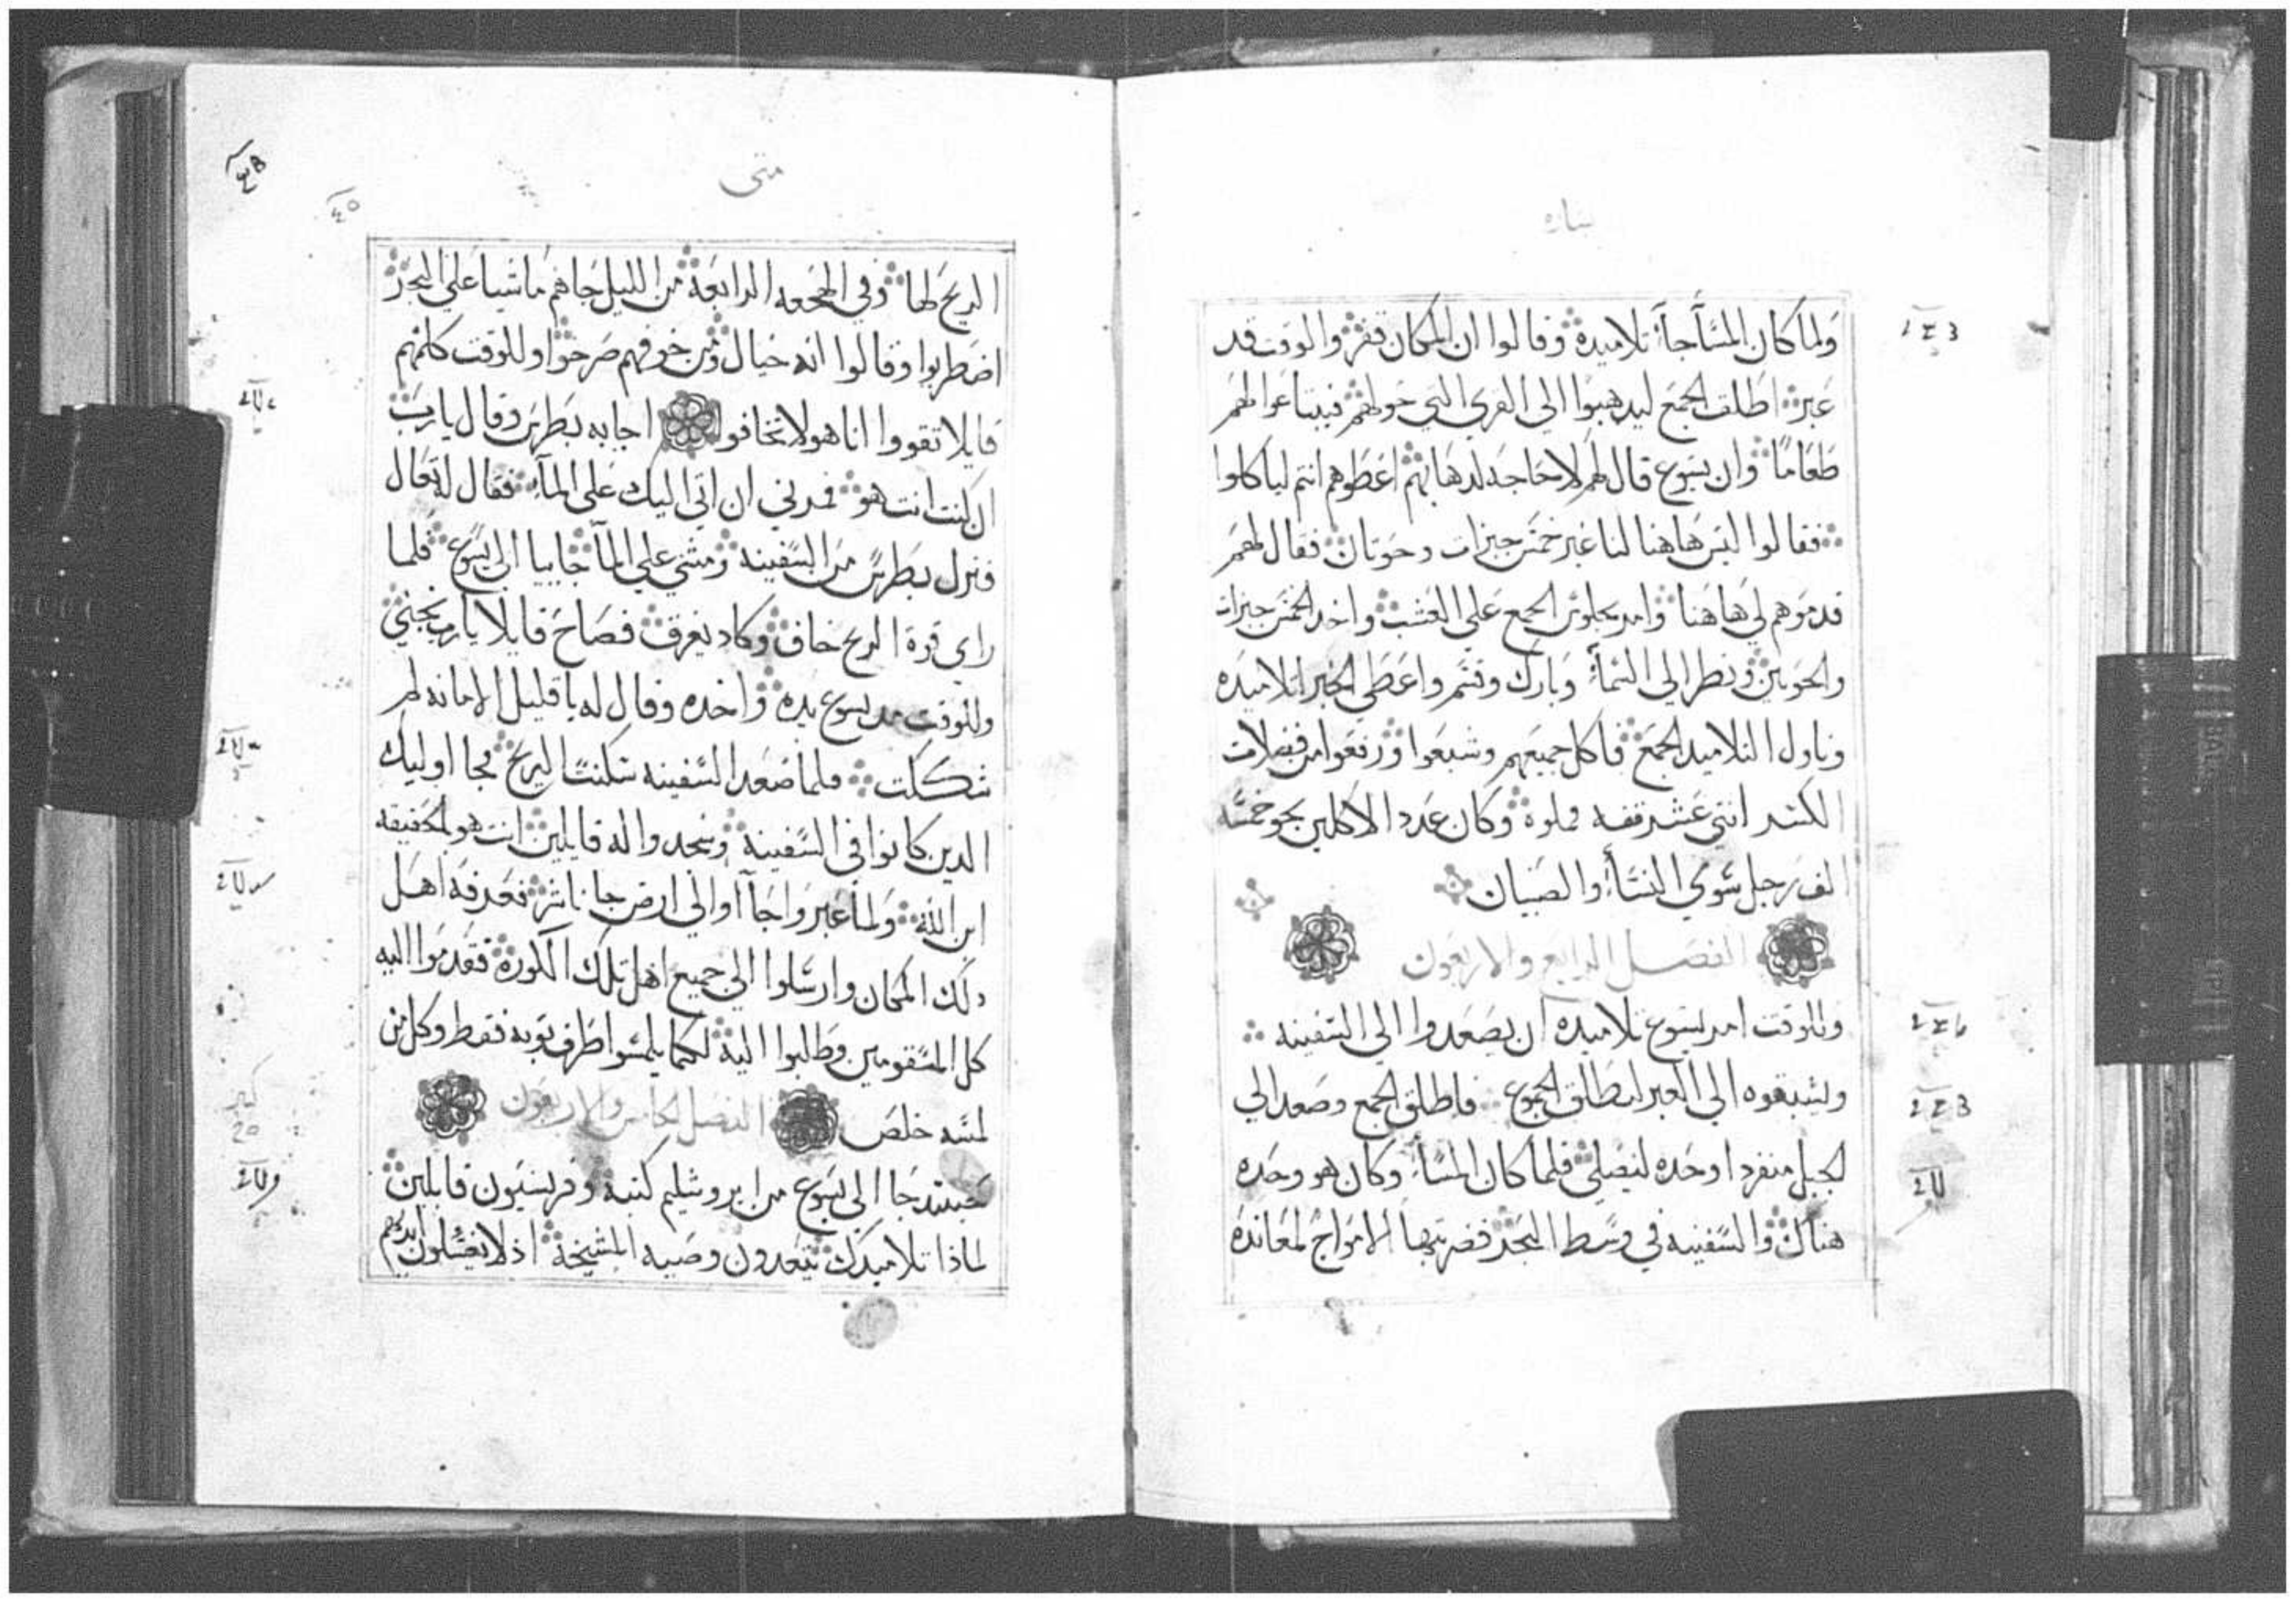 بشاره
ولما كان المسآ جآ تلاميده وقالوا ان المكان قفر والوقت قد
عبر اطلق الجمع ليدهبوا الي القري التي حولهم فيبتاعوا لهم
طعامًا وان يسوع قال لهم لا حاجه لدهابهم اعطوهم انتم لياكلوا
فقالوا ليس هاهنا لنا غير خمس خبزات وحوتان فقال لهم
قدموهم لي هاهنا وامر بجلوس الجمع علي العشب واخد الخمس خبزات
والحوتين ونظر الي السمآ وبارك وقسم واعطي الخبز لتلاميده
وناول التلاميد الجمع فاكل جميعهم وشبعوا ورفعوا من فضلات
الكسر اثني عشر قفه مملوه وكان عدد الاكلين نحو خمسه
الف رجل سوي النسآ والصبيان
الفصل الرابع والاربعون
وللوقت امر يسوع تلاميده ان يصعدوا الي السفينه
ويسبقوه الي العبر ليطلق الجموع فاطلق الجمع وصعد الي
لجبل منفردا وحده ليصلي فلما كان المسآ وكان هو وحده
هناك والسفينه في وسط البحر فضربتها الامواج لمعانده
متى
الريح لها وفي الهجعه الرابعة من الليل جاهم ماشيا علي البحر
اضطربوا وقالوا انه خيال ومن خوفهم صرخوا وللوقت كلمهم
قايلا تقووا انا هو لا تخافوا اجابه بطرس وقال يارب
ان كنت انت هو فمرني ان اتي اليك علي المآ فقال له تعال
فنزل بطرس من السفينه ومشي علي المآ جاييا الي يسوع فلما
راي قوة الريح خاف وكاد يغرق فصاح قايلا يارب نجني
وللوقت مد يسوع يده واخده وقال له يا قليل الامانه لم
شككت فلما صعد السفينه سكنت الريح فجا اوليك
الدين كانوا في السفينه وسجدوا له قايلين انت هو بالحقيقه
ابن الله ولما عبروا جآ اوا الي ارض جاناشر فعرفه اهل
دلك المكان وارسلوا الي جميع اهل تلك الكوره فقدموا اليه
كل المسقومين وطلبوا اليه لكيما يلمسوا طرف ثوبه فقط وكل من
لمسه خلص الفصل الخامس والاربعون
حينيد جا الي يسوع من ايروشليم كتبة وفريسيون قايلين
لماذا تلاميدك يتعدون وصيه المشيخة اذ لا يغسلون ايديهم